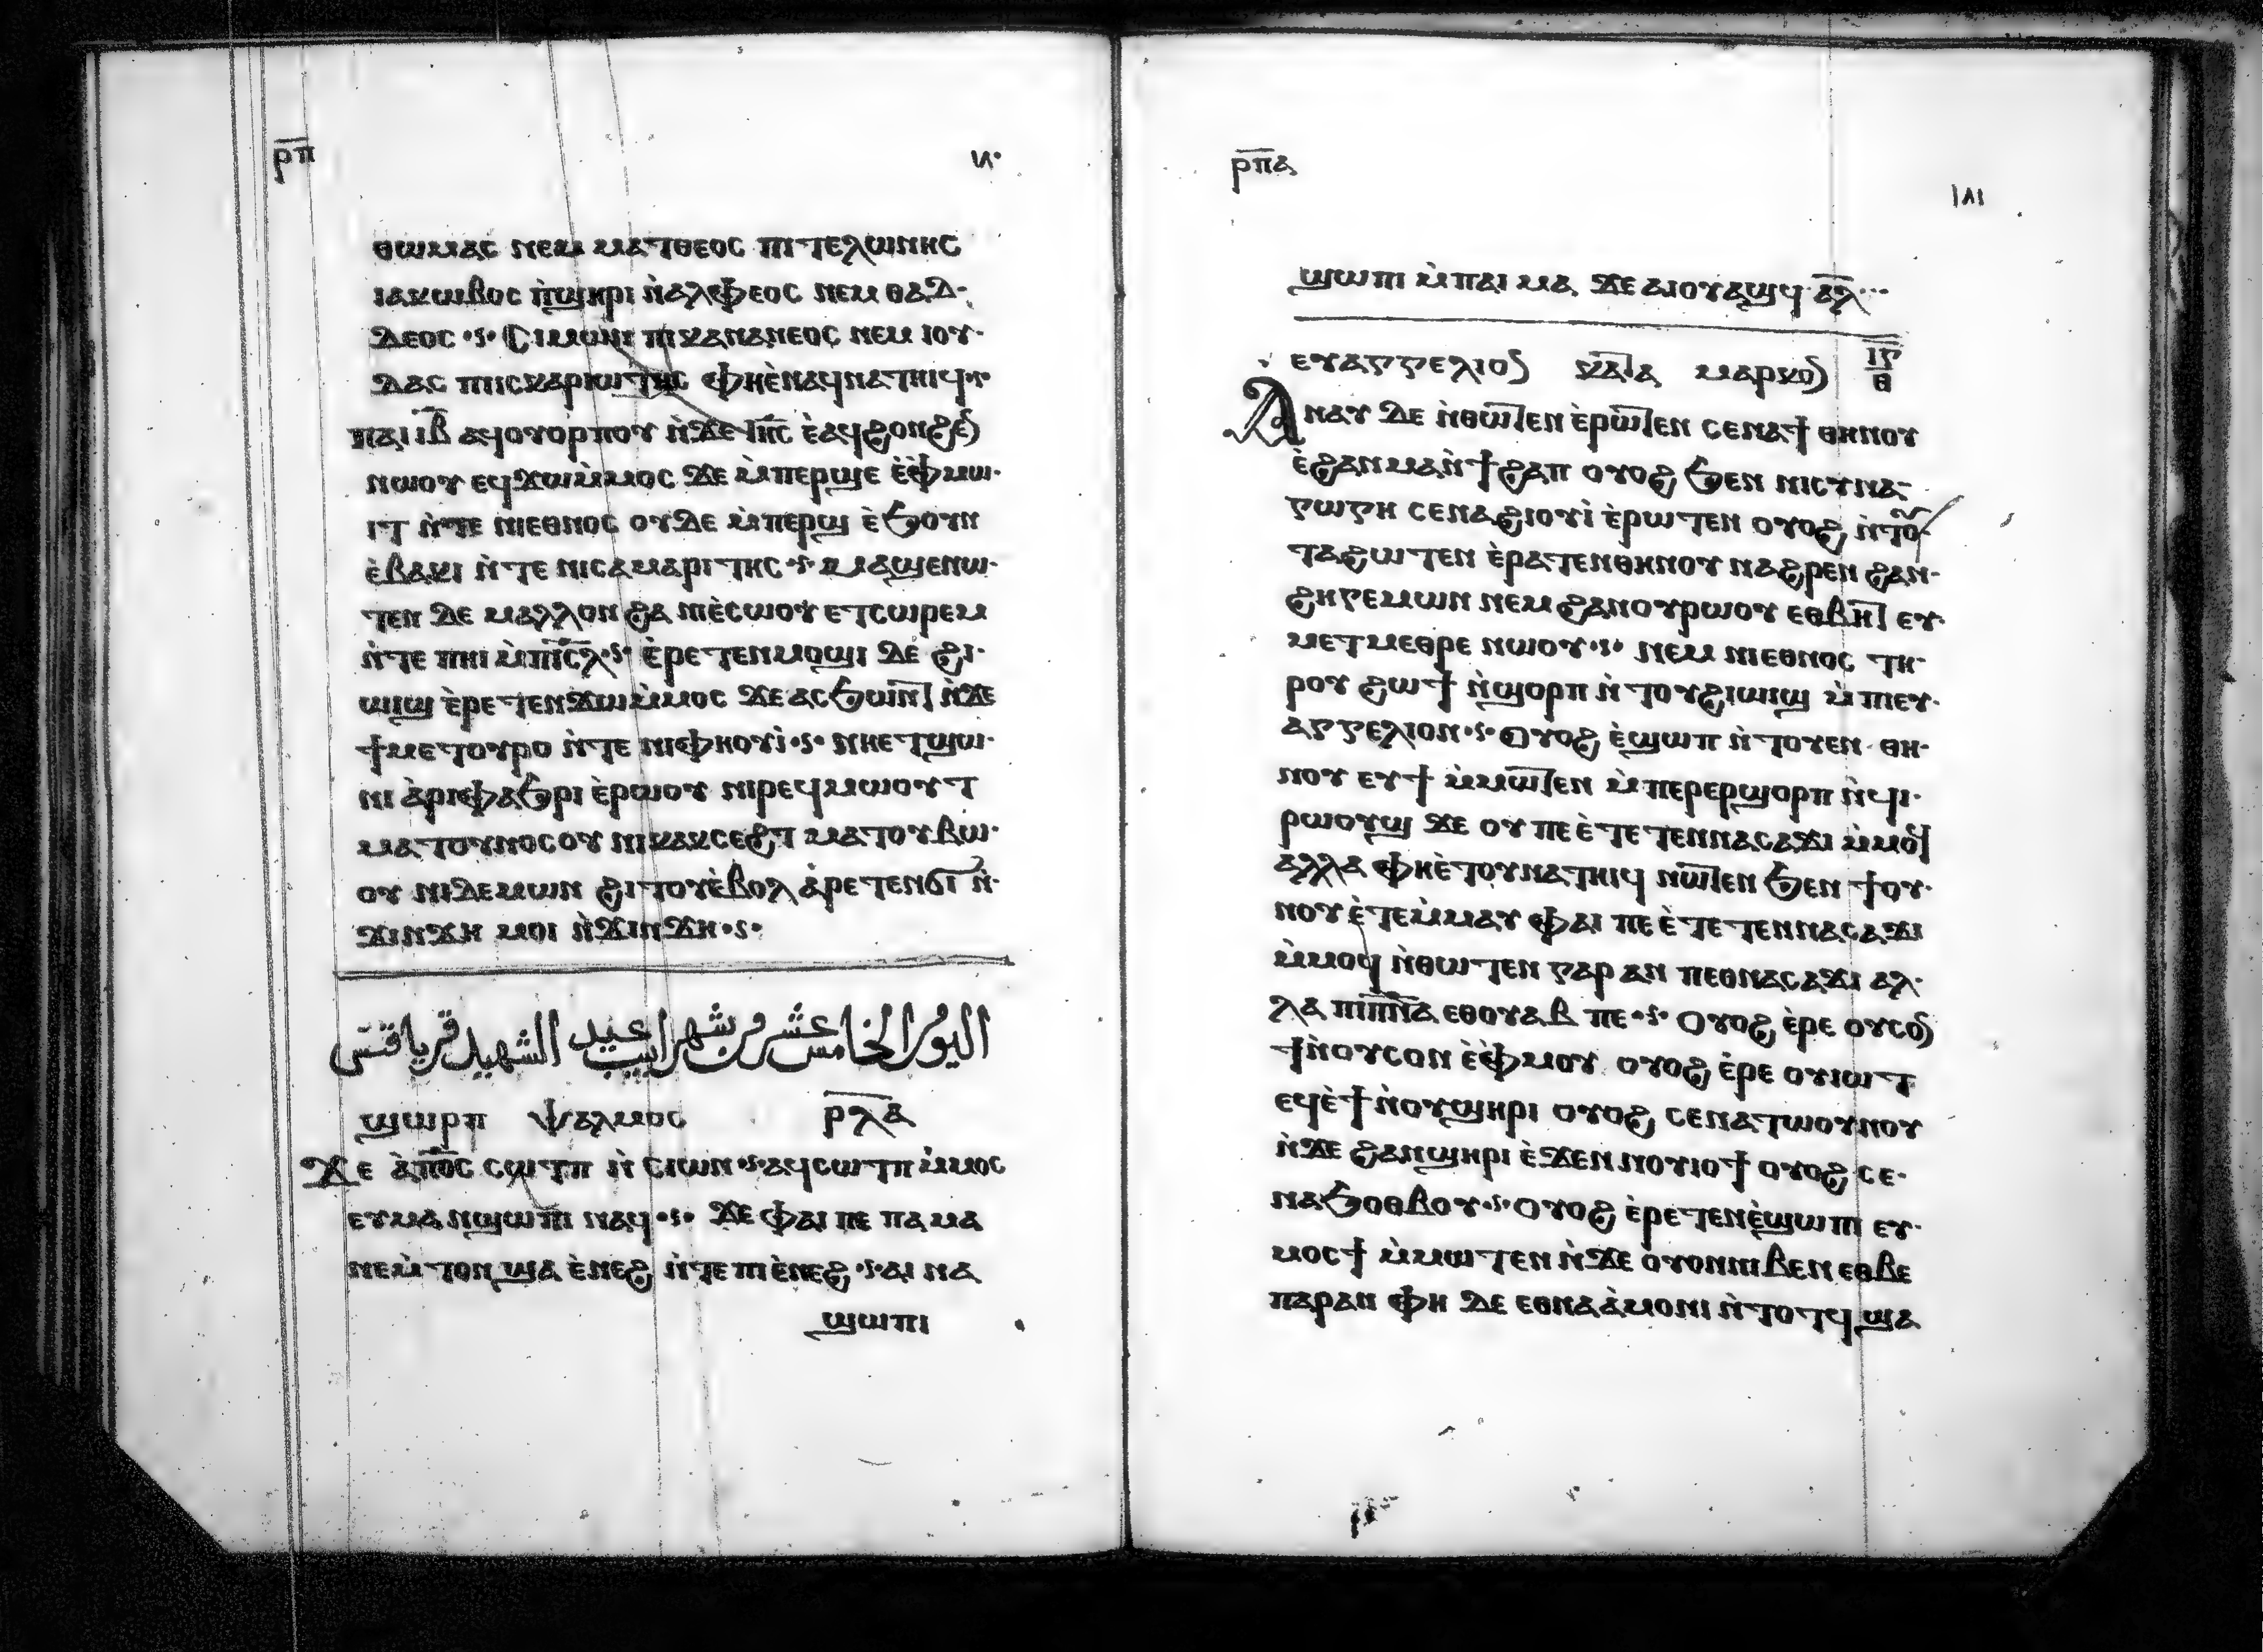 ⲣ̅ⲡ̅
ⲑⲱⲙⲁⲥ ⲛⲉⲙ ⲙⲁⲧⲑⲉⲟⲥ ⲡⲓⲧⲉⲗⲱⲛⲏⲥ
ⲓⲁⲕⲱⲃⲟⲥ ⲛ̀ϣⲏⲣⲓ ⲛ̀ⲁⲗⲫⲉⲟⲥ ⲛⲉⲙ ⲑⲁⲇ·
ⲇⲉⲟⲥ ·ⲋ· Ⲥⲓⲙⲱⲛⲓ ⲡⲓⲕⲁⲛⲁⲛⲉⲟⲥ ⲛⲉⲙ ⲓⲟⲩ·
ⲇⲁⲥ ⲡⲓⲓⲥⲕⲁⲣⲓⲱⲧⲏⲥ ⲫⲏⲉ̀ⲛⲁϥⲛⲁⲧⲏⲓϥ·ⲋ·
ⲡⲁⲓ ⲓ̅ⲃ̅ ⲁϥⲟⲩⲟⲣⲡⲟⲩ ⲛ̀ϫⲉ ⲓⲏ̅ⲥ̅ ⲉ̀ⲁϥϩⲟⲛϩⲉⲛ
ⲛⲱⲟⲩ ⲉϥϫⲱⲙ̀ⲙⲟⲥ ϫⲉ ⲙ̀ⲡⲉⲣϣⲉ ⲉ̀ⲫ̀ⲙⲱ·
ⲓⲧ ⲛ̀ⲧⲉ ⲛⲓⲉⲑⲛⲟⲥ ⲟⲩⲇⲉ ⲙ̀ⲡⲉⲣϣ ⲉ̀ϧⲟⲩⲛ
ⲉ̀ⲃⲁⲕⲓ ⲛ̀ⲧⲉ ⲛⲓⲥⲁⲙⲁⲣⲓⲧⲏⲥ ·ⲋ· ⲙⲁϣⲉⲛⲱ·
ⲧⲉⲛ ⲇⲉ ⲙⲁⲗⲗⲟⲛ ϩⲁ ⲛⲓⲉ̀ⲥⲱⲟⲩ ⲉⲧⲥⲱⲣⲉⲙ
ⲛ̀ⲧⲉ ⲡⲏⲓ ⲙ̀ⲡⲓ̅ⲥ̅ⲗ̅·ⲋ· ⲉ̀ⲣⲉⲧⲉⲛⲙⲟϣⲓ ⲇⲉ ϩⲓ·
ⲱⲓϣ ⲉ̀ⲣⲉⲧⲉⲛϫⲱⲙ̀ⲙⲟⲥ ϫⲉ ⲁⲥϧⲱⲛⲧ ⲛ̀ϫⲉ
ϯⲙⲉⲧⲟⲩⲣⲟ ⲛ̀ⲧⲉ ⲛⲓⲫⲏⲟⲩⲓ̀·ⲋ· ⲛⲏⲉⲧϣⲱ·
ⲛⲓ ⲁ̀ⲣⲓⲫⲁϧⲣⲓ ⲉ̀ⲣⲱⲟⲩ ⲛⲓⲣⲉϥⲙⲱⲟⲩⲧ
ⲙⲁⲧⲟⲩⲛⲟⲥⲟⲩ ⲛⲓⲕⲁⲕⲥⲉϩⲧ ⲙⲁⲧⲟⲩⲃⲱ·
ⲟⲩ ⲛⲓⲇⲉⲙⲱⲛ ϩⲓⲧⲟⲩⲉ̀ⲃⲟⲗ ⲁ̀ⲣⲉⲧⲉⲛϭⲓ ⲛ̀·
ϫⲓⲛϫⲏ ⲙⲟⲓ ⲛ̀ϫⲓⲛϫⲏ·ⲋ·
اليوم الخامس عشر من شهر ابيب عيد الشهيد قرياقتس
ϣⲱⲣⲡ ⲯⲁⲗⲙⲟⲥ ⲣ̅ⲗ̅ⲁ̅
Ϫⲉ ⲁ̀ⲡ̅ⲟ̅ⲥ̅ ⲥⲱⲧⲡ ⲛ̀ ⲥⲓⲱⲛ·ⲋ·ⲁϥⲥⲱⲧⲡ ⲙ̀ⲙⲟⲥ
ⲉⲩⲙⲁⲛϣⲱⲡⲓ ⲛⲁϥ·ⲋ· ϫⲉ ⲫⲁⲓ ⲡⲉ ⲡⲁ ⲙⲁ
ⲛⲉⲙ̀ⲧⲟⲛ ϣⲁ ⲉ̀ⲛⲉϩ ⲛ̀ⲧⲉ ⲡⲓⲉ̀ⲛⲉϩ·ⲋ·ⲁⲓ ⲛⲁ
ϣⲱⲡⲓ
ⲣ̅ⲡ̅ⲁ̅
١٨١
ϣⲱⲡⲓ ⲙ̀ⲡⲁⲓ ⲙⲁ ϫⲉ ⲁⲓⲟⲩⲁϣϥ ⲁ̅ⲗ̅
ⲉⲩⲁⲅⲅⲉⲗⲓⲟⲛ ⲕⲁⲧⲁ ⲙⲁⲣⲕⲟⲛ ⲓ̅ⲅ̅ ⲑ
Ⲁⲛⲁⲩ ⲇⲉ ⲛ̀ⲑⲱⲧⲉⲛ ⲉ̀ⲣⲱⲧⲉⲛ ⲥⲉⲛⲁϯ ⲑⲏⲛⲟⲩ
ⲉ̀ϩⲁⲛⲙⲁⲛ̀ϯϩⲁⲡ ⲟⲩⲟϩ ϧⲉⲛ ⲛⲓⲥⲩⲛⲁ·
ⲅⲱⲅⲏ ⲥⲉⲛⲁϩⲓⲟⲩⲓ̀ ⲉ̀ⲣⲱⲧⲉⲛ ⲟⲩⲟϩ ⲛ̀ⲧⲟⲩ·
ⲧⲁϩⲱⲧⲉⲛ ⲉ̀ⲣⲁⲧⲉⲛⲑⲏⲛⲟⲩ ⲛⲁϩⲣⲉⲛ ϩⲁⲛ·
ϩⲏⲅⲉⲙⲱⲛ ⲛⲉⲙ ϩⲁⲛⲟⲩⲣⲱⲟⲩ ⲉⲑⲃⲏⲧ ⲉⲩ·
ⲙⲉⲧⲙⲉⲑⲣⲉ ⲛⲱⲟⲩ·ⲋ· ⲛⲉⲙ ⲛⲓⲉⲑⲛⲟⲥ ⲧⲏ·
ⲣⲟⲩ ϩⲱϯ ⲛ̀ϣⲟⲣⲡ ⲛ̀ⲧⲟⲩϩⲓⲱⲓϣ ⲙ̀ⲡⲓⲉⲩ·
ⲁⲅⲅⲉⲗⲓⲟⲛ·ⲋ· Ⲟⲩⲟϩ ⲉ̀ϣⲱⲡ ⲛ̀ⲧⲟⲩⲉⲛ ⲑⲏ·
ⲛⲟⲩ ⲉⲩϯ ⲙ̀ⲙⲱⲧⲉⲛ ⲙ̀ⲡⲉⲣⲉⲣϣⲟⲣⲡ ⲛ̀ϥⲓ·
ⲣⲱⲟⲩϣ ϫⲉ ⲟⲩ ⲡⲉ ⲉ̀ⲧⲉⲧⲉⲛⲛⲁⲥⲁϫⲓ ⲙ̀ⲙⲟϥ
ⲁⲗⲗⲁ ⲫⲏⲉ̀ⲧⲟⲩⲛⲁⲧⲏⲓϥ ⲛⲱⲧⲉⲛ ϧⲉⲛ ϯⲟⲩ·
ⲛⲟⲩ ⲉ̀ⲧⲉⲙ̀ⲙⲁⲩ ⲫⲁⲓ ⲡⲉ ⲉ̀ⲧⲉⲧⲉⲛⲛⲁⲥⲁϫⲓ
ⲙ̀ⲙⲟϥ ⲛ̀ⲑⲱⲧⲉⲛ ⲅⲁⲣ ⲁⲛ ⲡⲉⲑⲛⲁⲥⲁϫⲓ ⲁⲗ·
ⲗⲁ ⲡⲓⲡ̅ⲛ̅ⲁ̅ ⲉⲑⲟⲩⲁⲃ ⲡⲉ·ⲋ· Ⲟⲩⲟϩ ⲉ̀ⲣⲉ ⲟⲩⲥⲟⲛ
ϯⲛ̀ⲟⲩⲥⲟⲛ ⲉ̀ⲫ̀ⲙⲟⲩ ⲟⲩⲟϩ ⲉ̀ⲣⲉ ⲟⲩⲓⲱⲧ
ⲉϥⲉ̀ϯⲛ̀ⲟⲩϣⲏⲣⲓ ⲟⲩⲟϩ ⲥⲉⲛⲁⲧⲱⲟⲩⲛⲟⲩ
ⲛ̀ϫⲉ ϩⲁⲛϣⲏⲣⲓ ⲉ̀ϫⲉⲛ ⲛⲟⲩⲓⲟϯ ⲟⲩⲟϩ ⲥⲉ·
ⲛⲁϧⲟⲑⲃⲟⲩ·ⲋ·Ⲟⲩⲟϩ ⲉ̀ⲣⲉⲧⲉⲛⲉ̀ϣⲱⲡⲓ ⲉⲩ·
ⲙⲟⲥϯ ⲙ̀ⲙⲱⲧⲉⲛ ⲛ̀ϫⲉ ⲟⲩⲟⲛⲛⲓⲃⲉⲛ ⲉⲑⲃⲉ
ⲡⲁⲣⲁⲛ ⲫⲏ ⲇⲉ ⲉⲑⲛⲁⲁ̀ⲙⲟⲛⲓ ⲛ̀ⲧⲟⲧϥ ϣⲁ